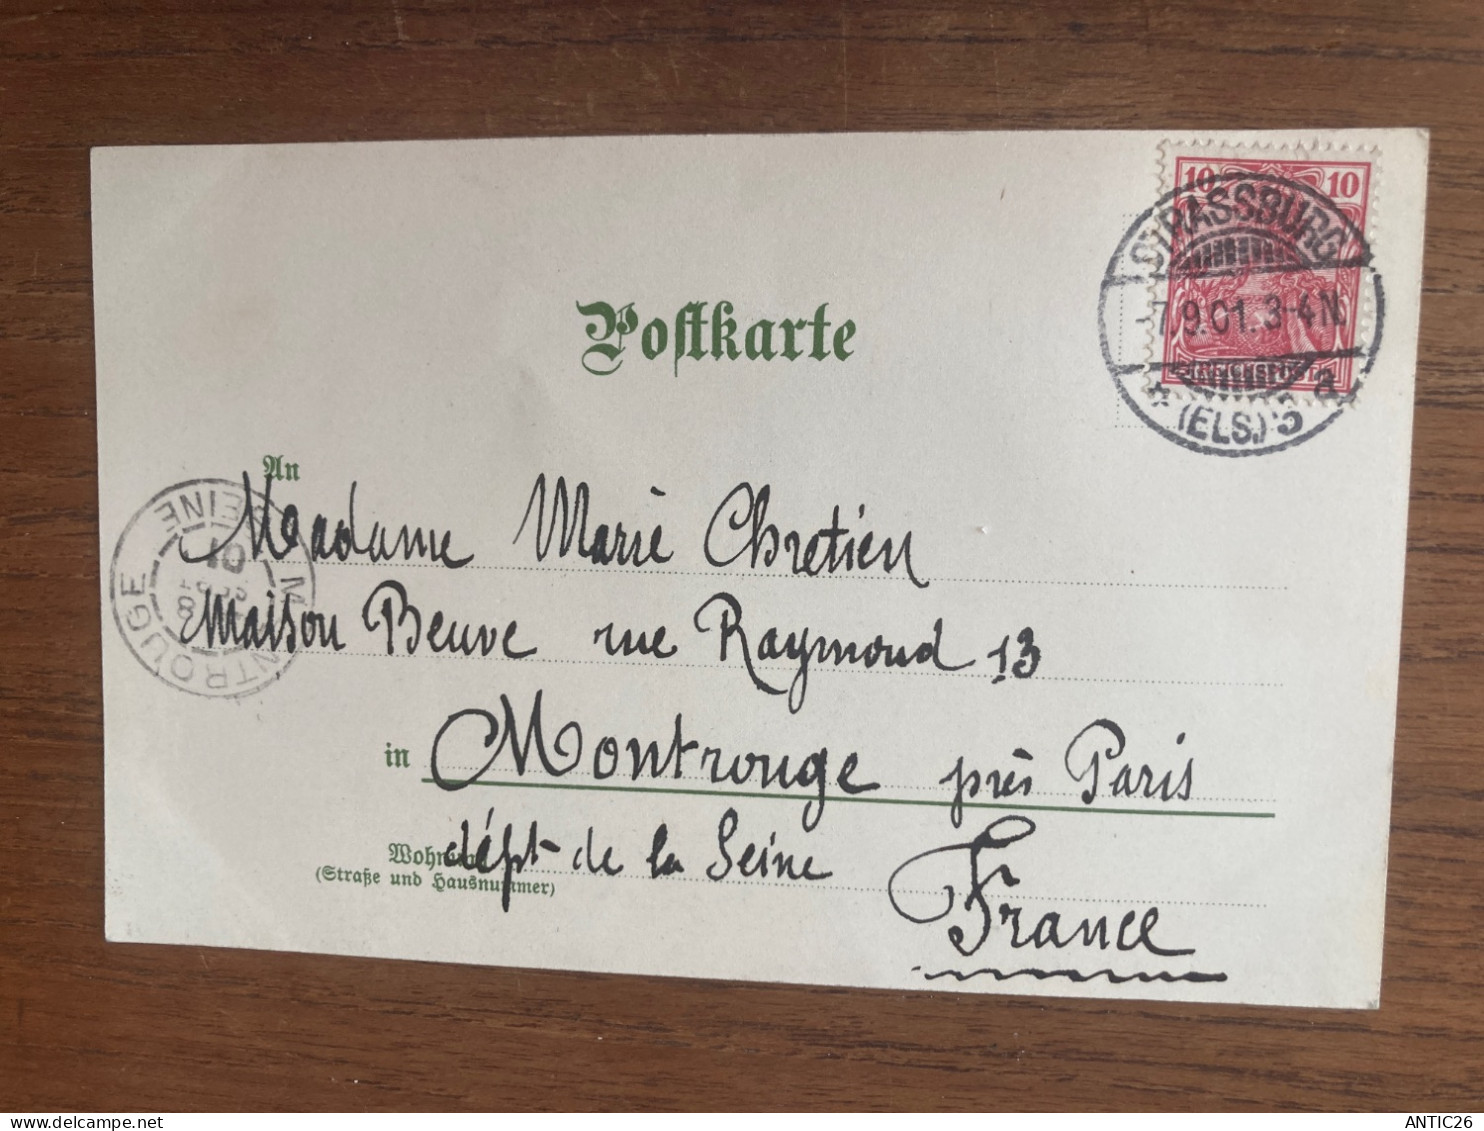 10 10
STRASSBURG
7.9.01.3-4N.
REICHSPOST
* (ELS.) 5 a
Postkarte
An
Madame Marie Chretien
Maison Beuve rue Raymond 13
in Montrouge près Paris
dépt de la Seine
Wohnung
(Straße und Hausnummer)
France
MONTROUGE
SEINE
8
01
delcampe.net
ANTIC26